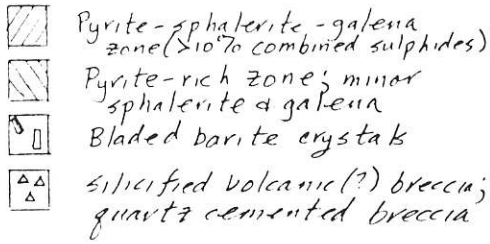 Pyrite-sphalerite-galena
zone (>10% combined sulphides)
Pyrite-rich zone; minor
sphalerite & galena
Bladed barite crystals
silicified volcanic(?) breccia;
quartz cemented breccia